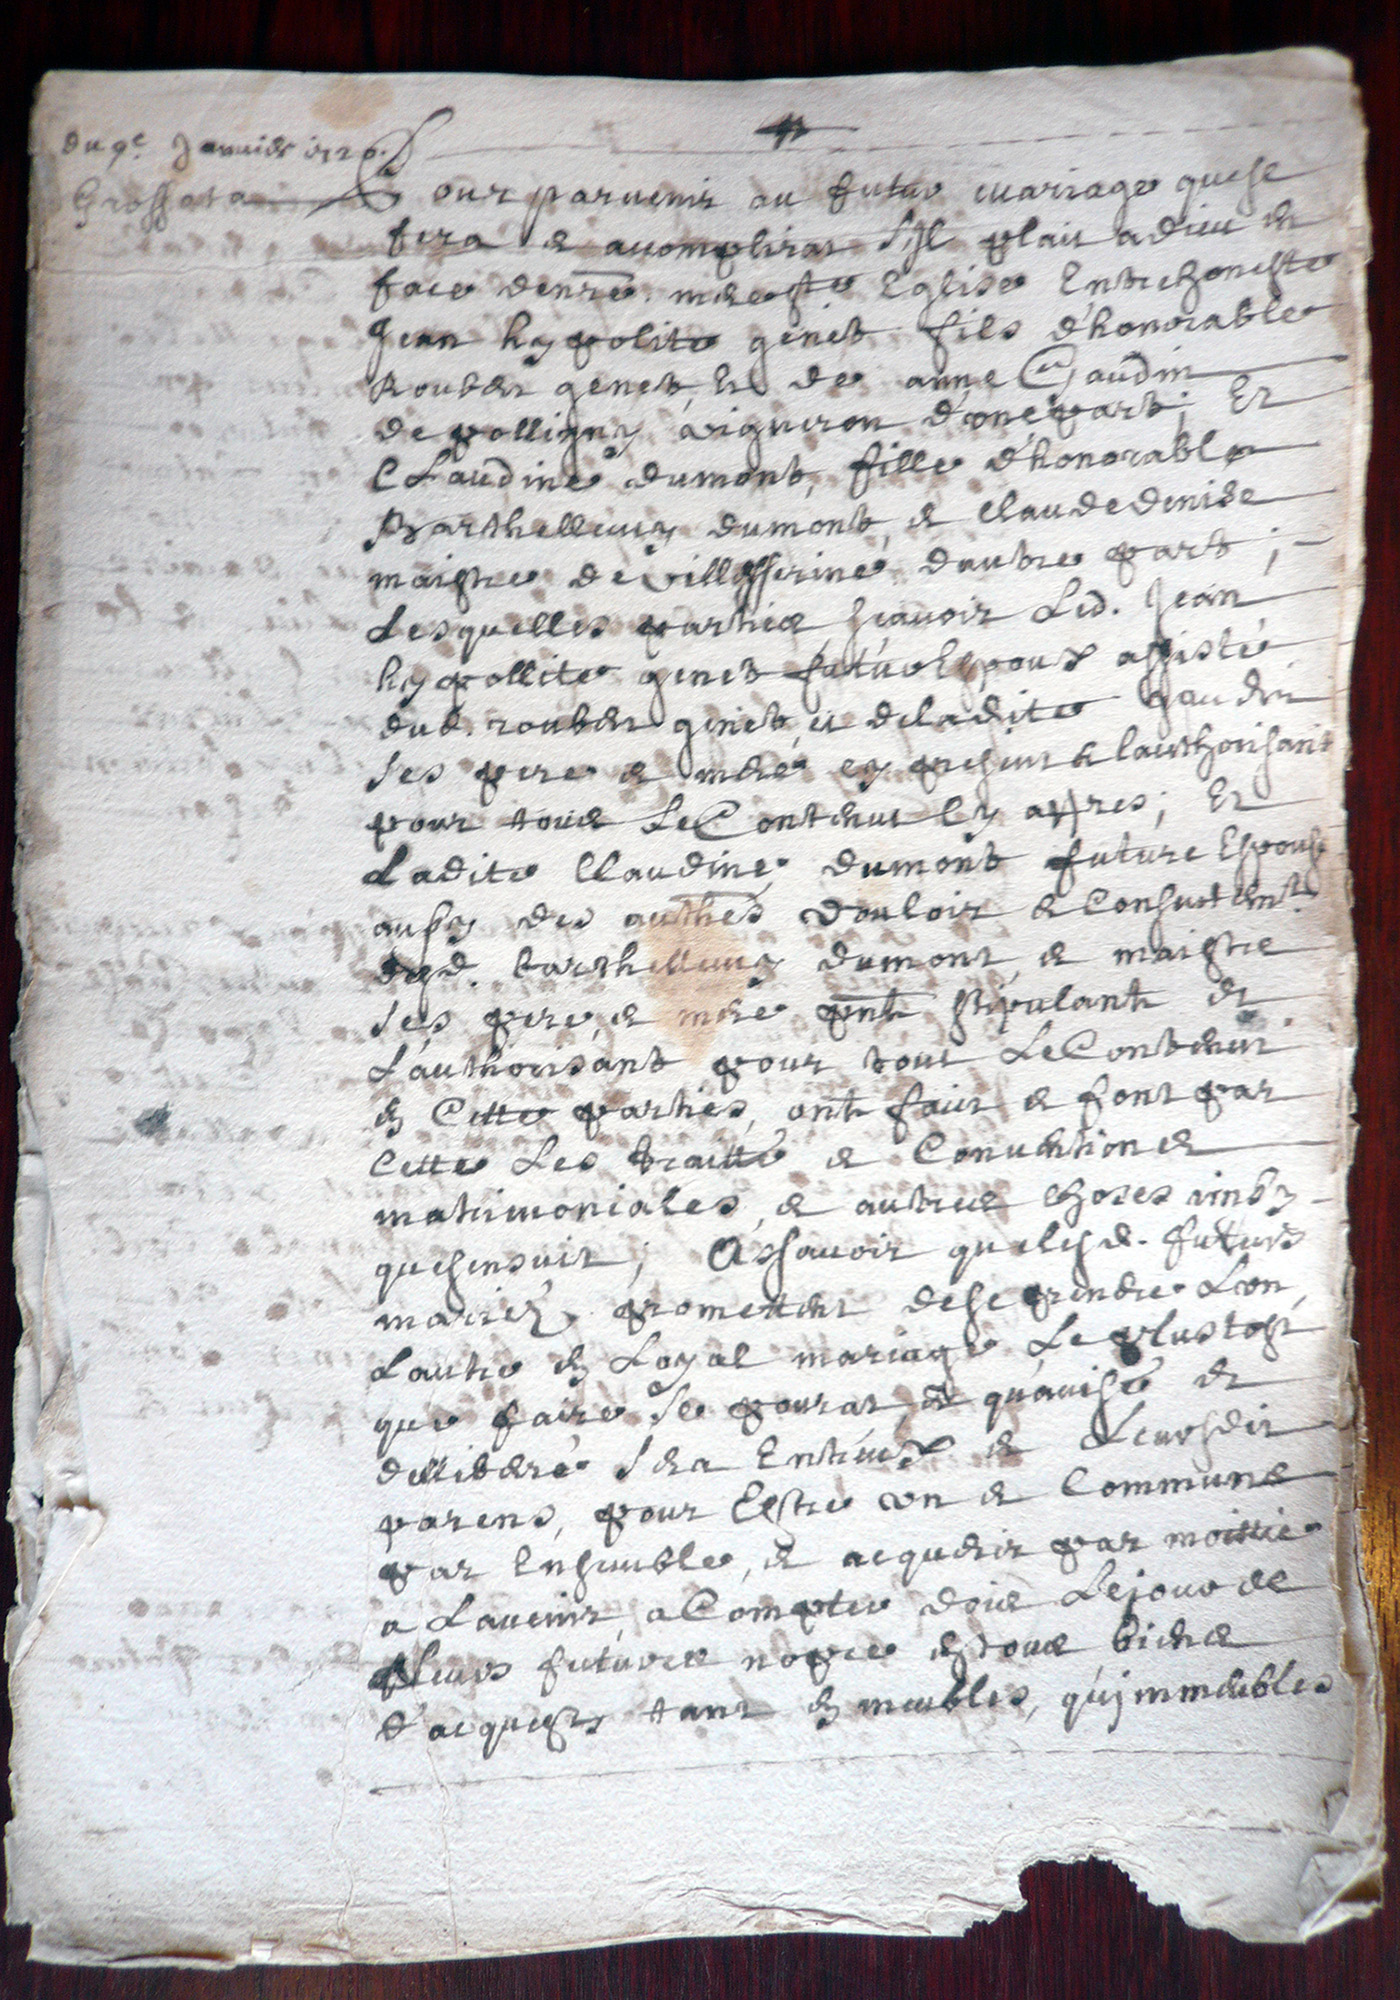 du 9e Janvier 1720.
Grossata
Pour parvenir au futur mariage quese
fera et accomplirat sjl plait a dieu en
face de nre mere ste Eglise Entre honeste
Jean hypolite genet fils d'honorable
Rouber genet, Et de anne Gaudin
de polligny vigneron d'one part; Et
Claudine dumont, fille d'honorable
Barthellemy dumont, et claude denise
maistre de villesserine d'autre part;
Lesquelles parties scavoir Led. Jean
hypollite genet futur Espoux assisté
dud. rouber genet, et deladite gaudin
ses pere et mere cy present et lauthorisant
pour tous Le Contenut Cy apres; Et
Ladite Claudine dumont future Espouse
aussy des authes vouloir et Consentemt
desd. barthellemy dumont, et maistre
ses pere, et mere pnt stipulant et
Lauthorisant pour tout Le Contenut
en Cette parties, ont fait et font par
Cette Les traitté et Convention et
matrimoniales, et autres choses ainsy
quesensuit; Assavoir quelesd. futurs
mariez promettent dese prendre L'on
Lautre en Loyal mariage Le plustost
que faire se pourat, et qu'avisé et
dellibéré sera Entreux et Leursdit
parens, pour Estre vn et Commune
par Ensemble, et acquerir par moittie
a Lavenir, a Compter dois Lejour de
Leurs futures nopce en tous biens
d'acquests tant en meubles, qu'jmmeubles